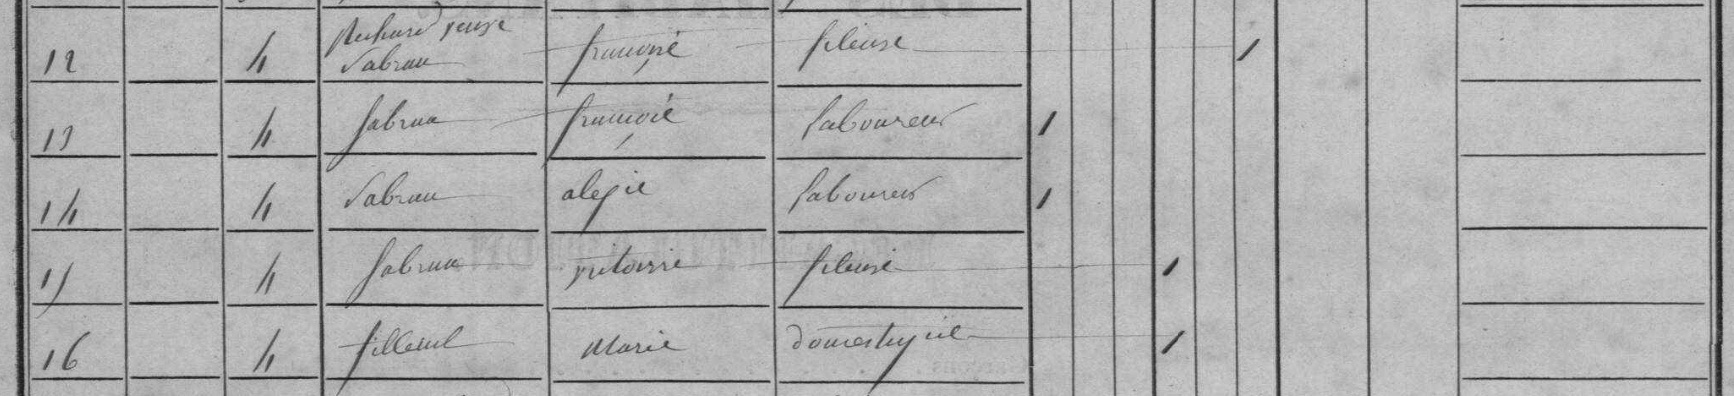 12 4 Richard veuve
Sabrau françoise fileuse 1
13 4 Sabrau françoie laboureur 1
14 4 Sabrau alexie laboureur 1
15 4 Sabrau victoire fileuse 1
16 4 filleul Marie domestique 1